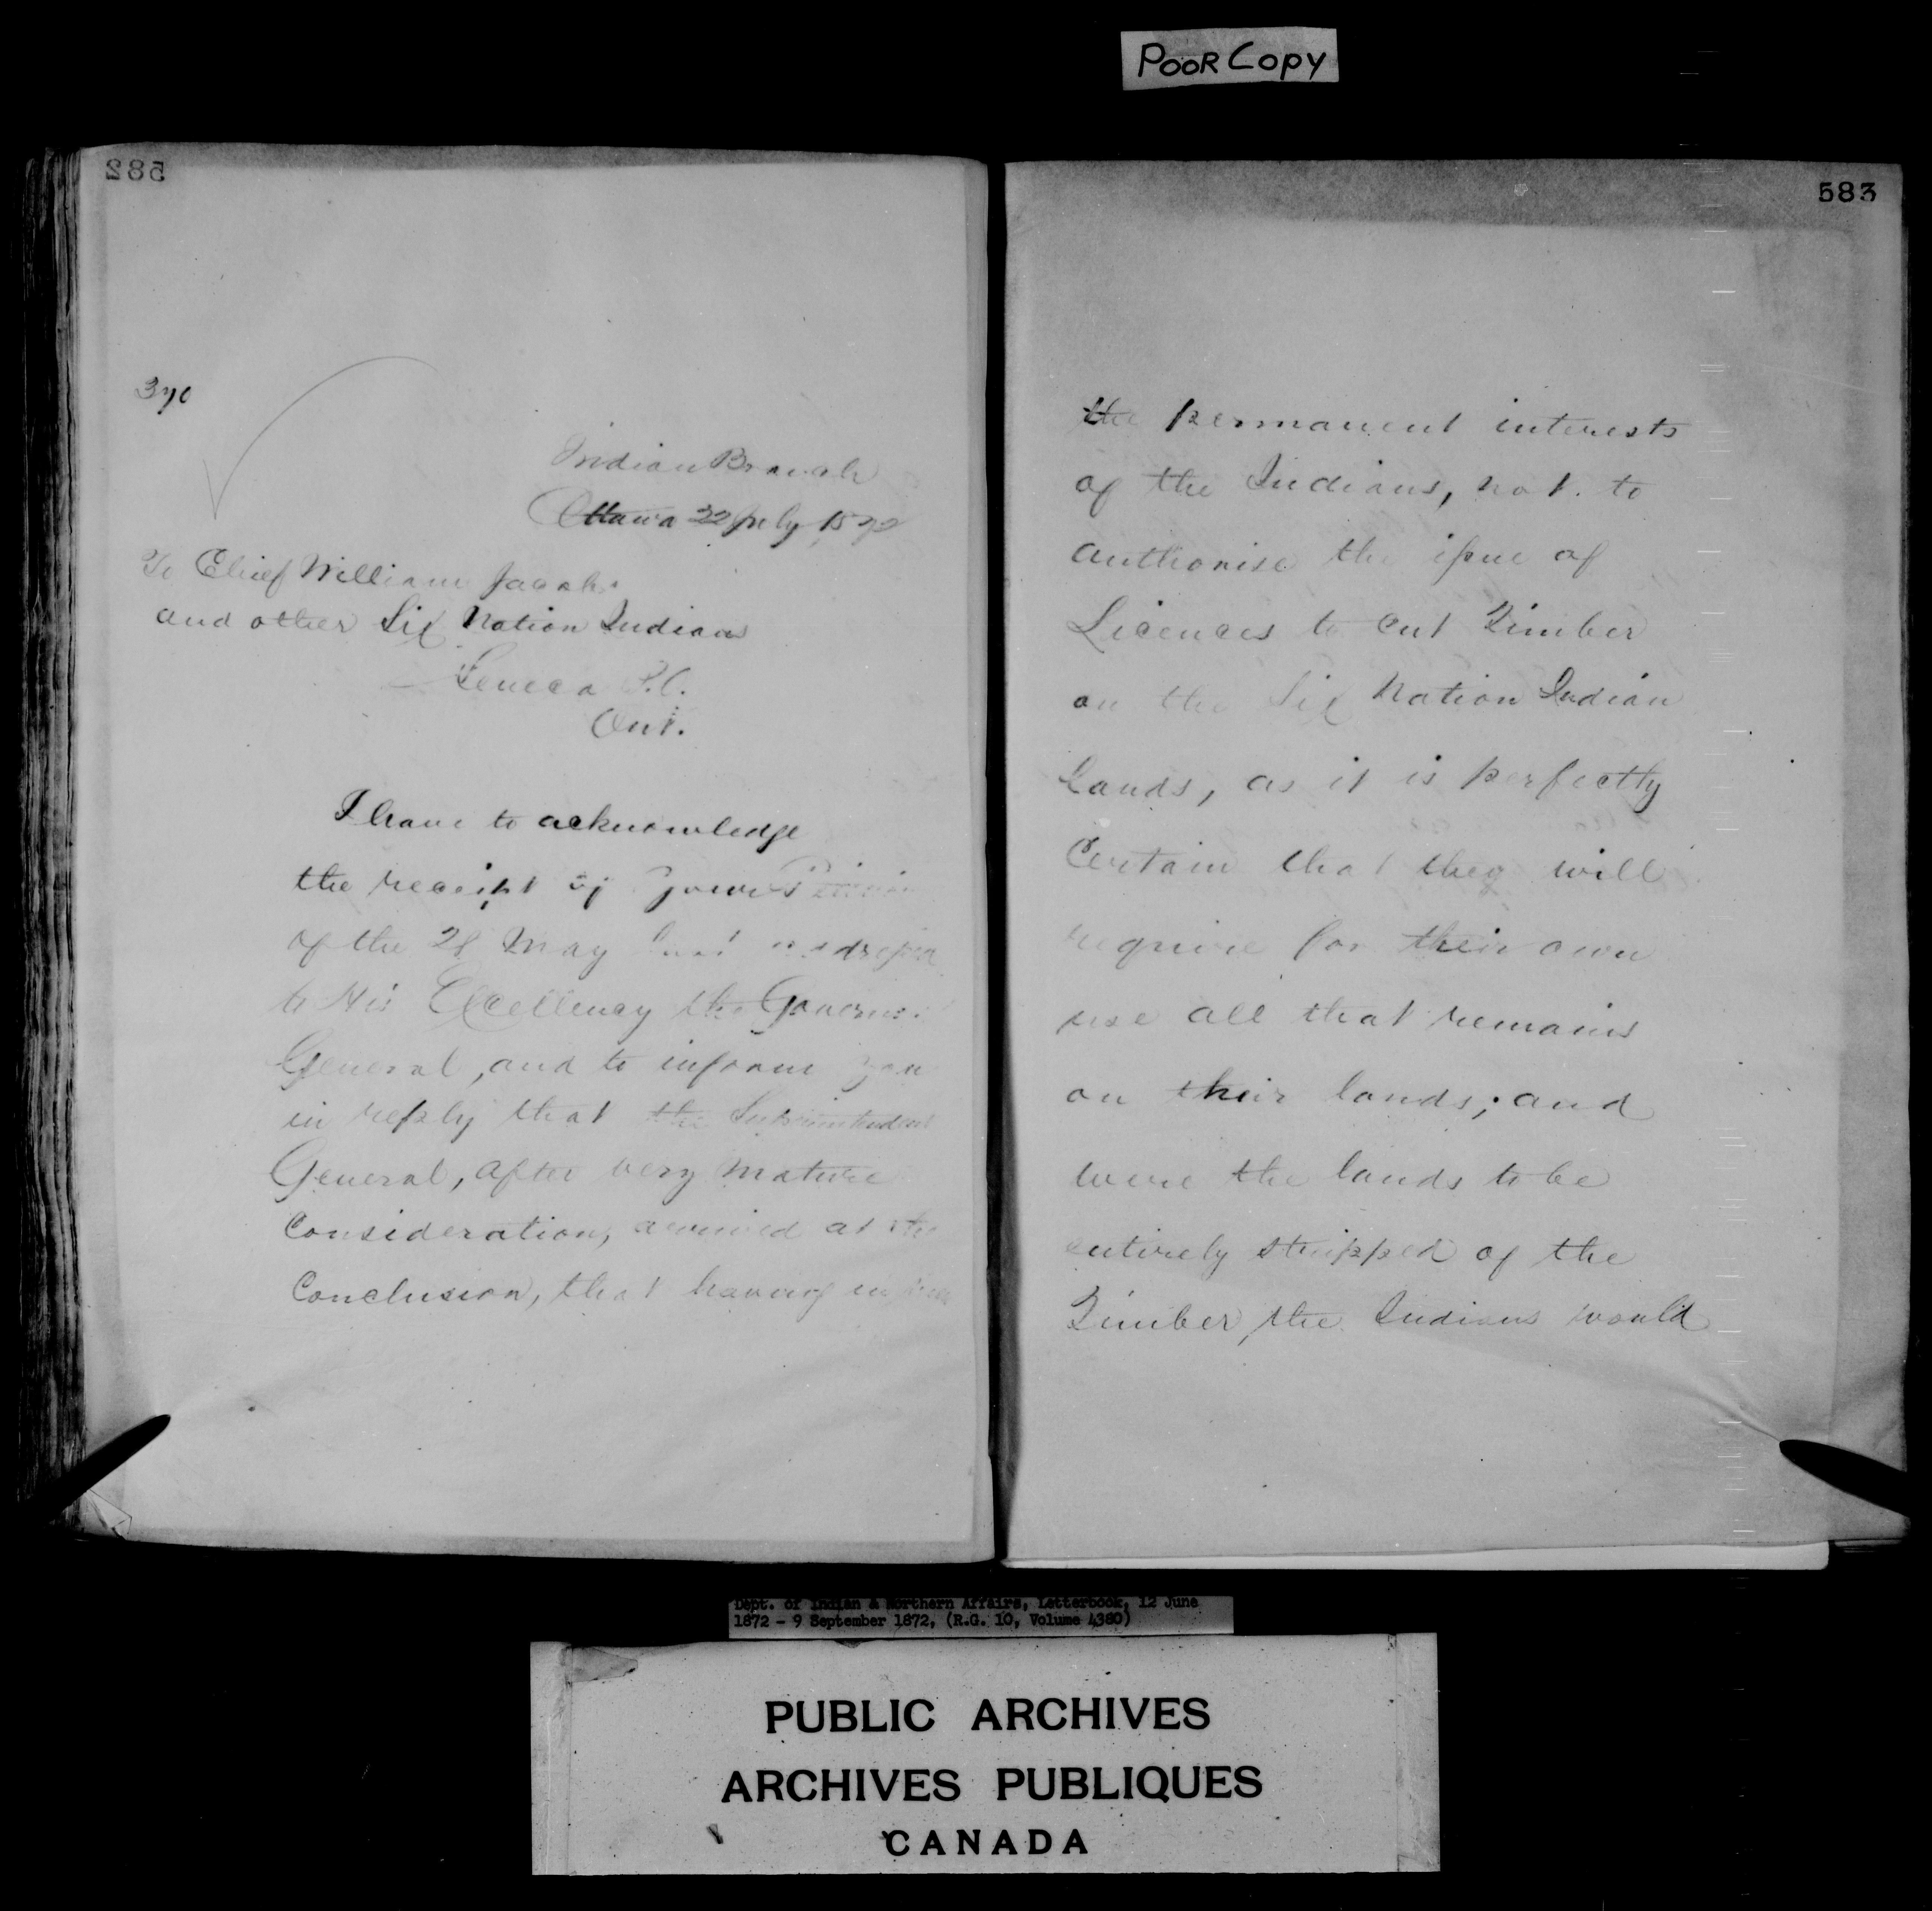 POOR Copy
582
370
Indian Branch
Ottawa 22 July 1872
To Chief William Jacobs
and other Six Nation Indians
Seneca P.O.
Ont.
I have to acknowledge
the receipt of your Petition
of the 28 May last addressed
to His Excellency the Governor
General, and to inform you
in reply that the Superintendent
General, after very mature
Consideration, arrived at the
Conclusion, that having in view
583
the permanent interests
of the Indians, not to
authorise the issue of
Licences to cut Timber
on the Six Nation Indian
Lands, as it is perfectly
Certain that they will
require for their own
use all that remains
on their lands; and
were the lands to be
entirely stripped of the
Timber, the Indians would
Dept. of Indian & Northern Affairs, Letterbook, 12 June
1872 - 9 September 1872, (R.G. 10, Volume 4380)
PUBLIC ARCHIVES
ARCHIVES PUBLIQUES
CANADA